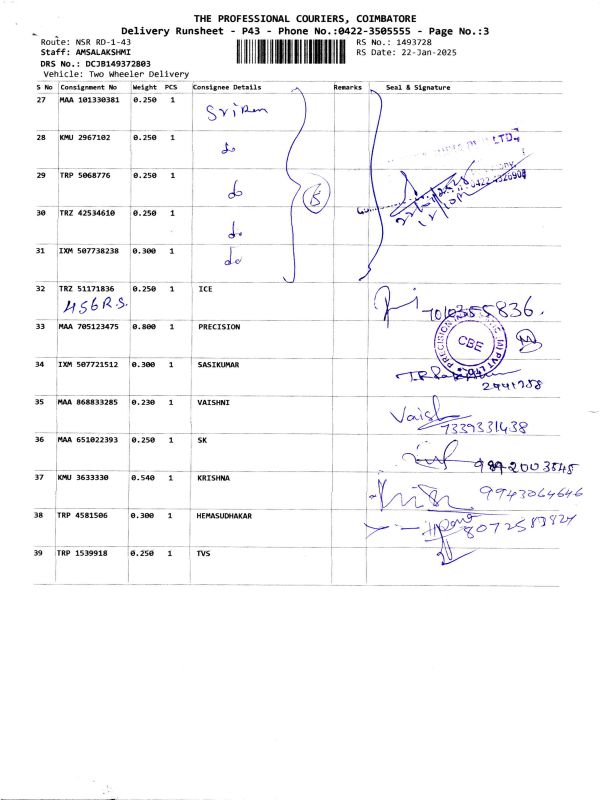 THE PROFESSIONAL COURIERS, COIMBATORE
Delivery Runsheet - P43 - Phone No.:0422-3505555 - Page No.:3
Route: NSR RD-1-43 RS No.: 1493728
Staff: AMSALAKSHMI RS Date: 22-Jan-2025
DRS No.: DCJB149372803
Vehicle: Two Wheeler Delivery
S No Consignment No Weight PCS Consignee Details Remarks Seal & Signature
27 MAA 101330381 0.250 1
28 KMU 2967102 0.250 1 do
29 TRP 5068776 0.250 1 do
30 TRZ 42534610 0.250 1 do
31 IXM 507738238 0.300 1 do
32 TRZ 51171836 0.250 1 ICE
456 R.S.
33 MAA 705123475 0.800 1 PRECISION CBE
34 IXM 507721512 0.300 1 SASIKUMAR
35 MAA 868833285 0.230 1 VAISHNI Vaish
7339331438
36 MAA 651022393 0.250 1 SK
37 KMU 3633330 0.540 1 KRISHNA 9943064646
38 TRP 4581506 0.300 1 HEMASUDHAKAR
39 TRP 1539918 0.250 1 TVS